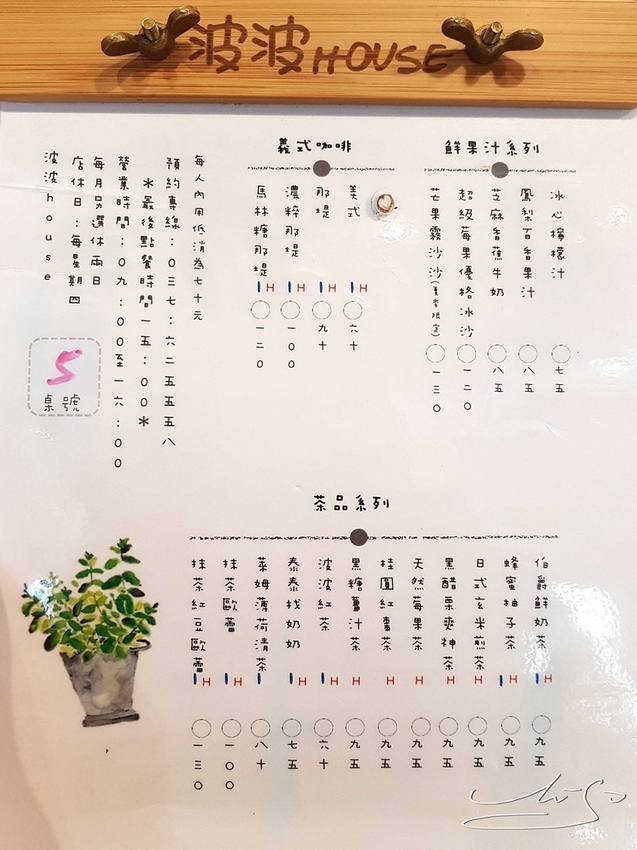 波波HOUSE
鮮果汁系列
冰心檸檬汁 七五
鳳梨百香果汁 八五
芝麻香蕉牛奶 八五
超級莓果優格冰沙 一二０
芒果霧沙沙(夏季限定) 一三０
義式咖啡
美式 I H 六十
那堤 I H 九十
濃粹那堤 I H 一００
馬林糖那堤 I H 一二０
每人內用低消為七十元
預約專線：０三七：六二五五五八
＊最後點餐時間一五：００＊
營業時間：０九：００至一六：００
每月另選休兩日
店休日：每星期四
波波house
5
桌號
茶品系列
伯爵鮮奶茶 I H 九五
蜂蜜柚子茶 I H 九五
日式玄米煎茶 H 九五
黑醋栗爽神茶 H 九五
天然莓果茶 H 九五
桂圓紅棗茶 H 九五
黑糖薑汁茶 H 九五
波波紅茶 I H 六十
泰泰找奶奶 I H 七五
萊姆薄荷清茶 I 八十
抹茶歐蕾 I H 一００
抹茶紅豆歐蕾 I H 一三０